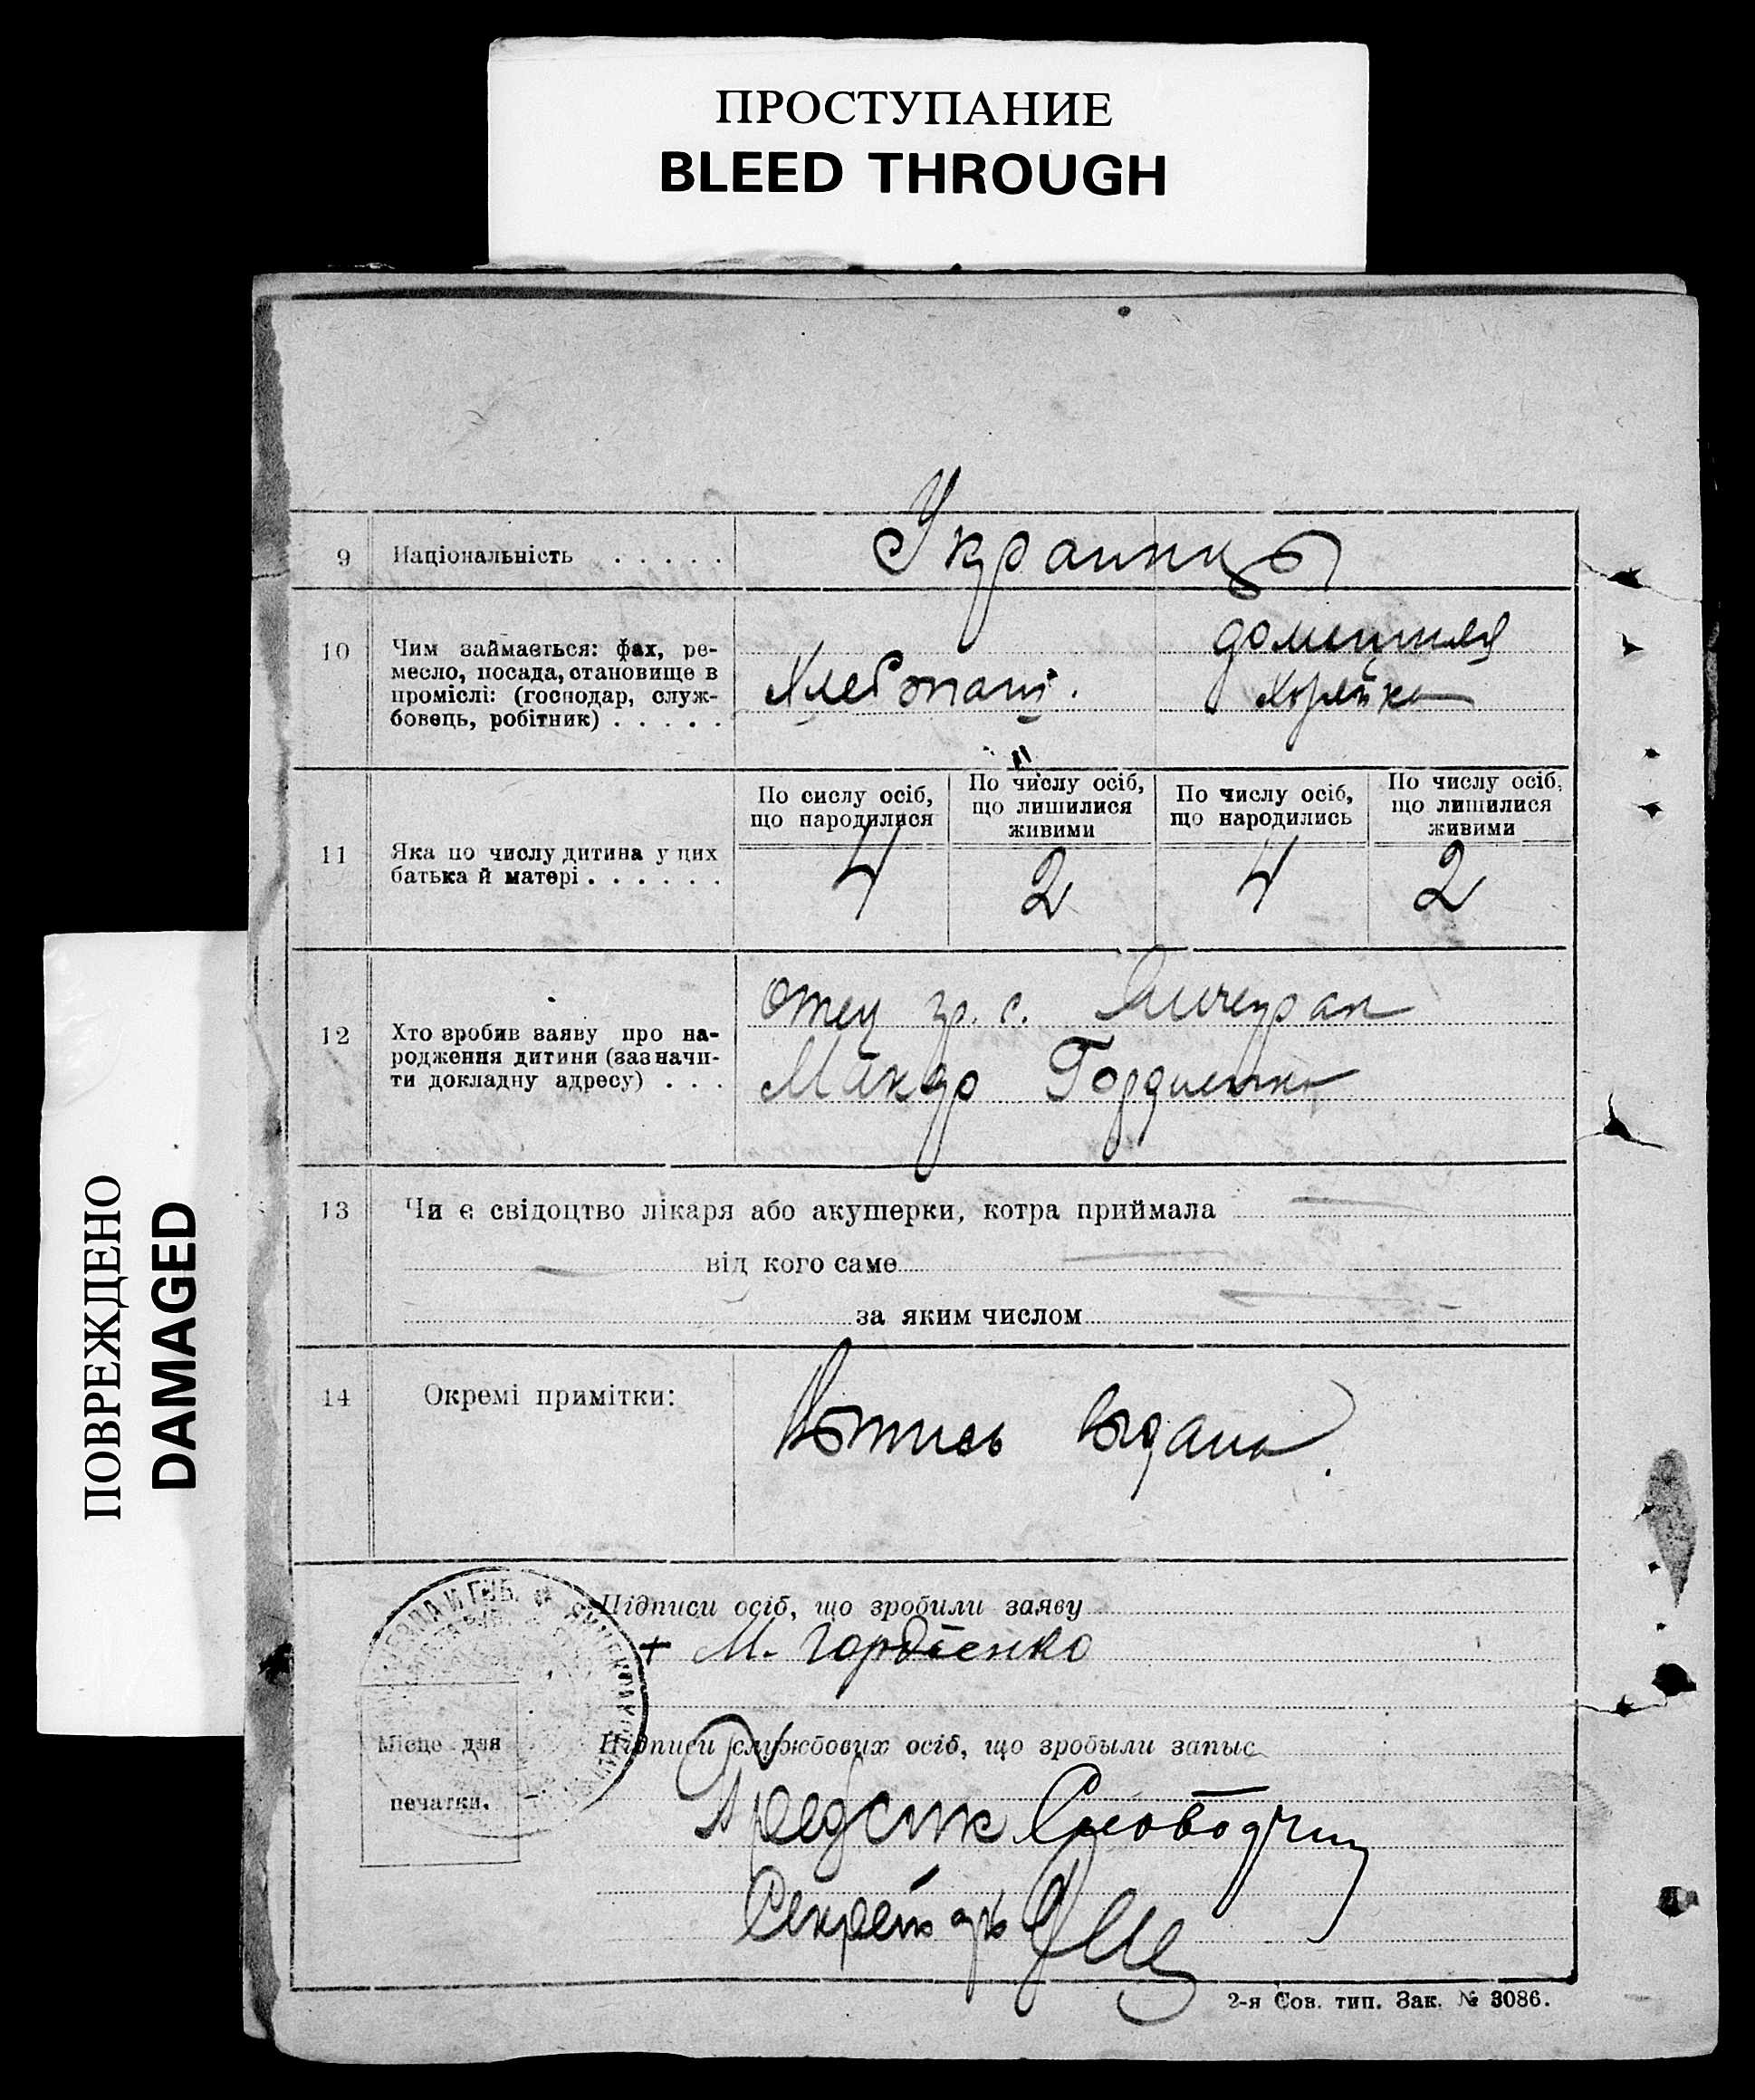 ПРОСТУПАНИЕ
BLEED THROUGH
ПОВРЕЖДЕНО
DAMAGED
9 Національність . . . . . Украинцы
10 Чим займається: фах, ре-
месло, посада, становище в
проміслі: (господар, служ-
бовець, робітник) . . . . .
Хлебопаш.
домашняя
11 Яка по числу дитина у цих
батька й матері . . . . . .
По сислу осіб,
що народилися
По числу осіб,
що лишилися
живими
По числу осіб,
що народились
По числу осіб,
що лишилися
живими
4 2 4 2
12 Хто зробив заяву про на-
родження дитини (зазначи-
ти докладну адресу) . . .
Отец гр. с.
Гордиенко
13 Чи є свідоцтво лікаря або акушерки, котра приймала
від кого саме
за яким числом
14 Окремі примітки:
выдана.
Підписи осіб, що зробили заяву
+ М. Гордіенко
Підписи службових осіб, що зробыли запыс
Місце для
печатки.
Секретарь
2-я Сов. тип. Зак. № 3086.